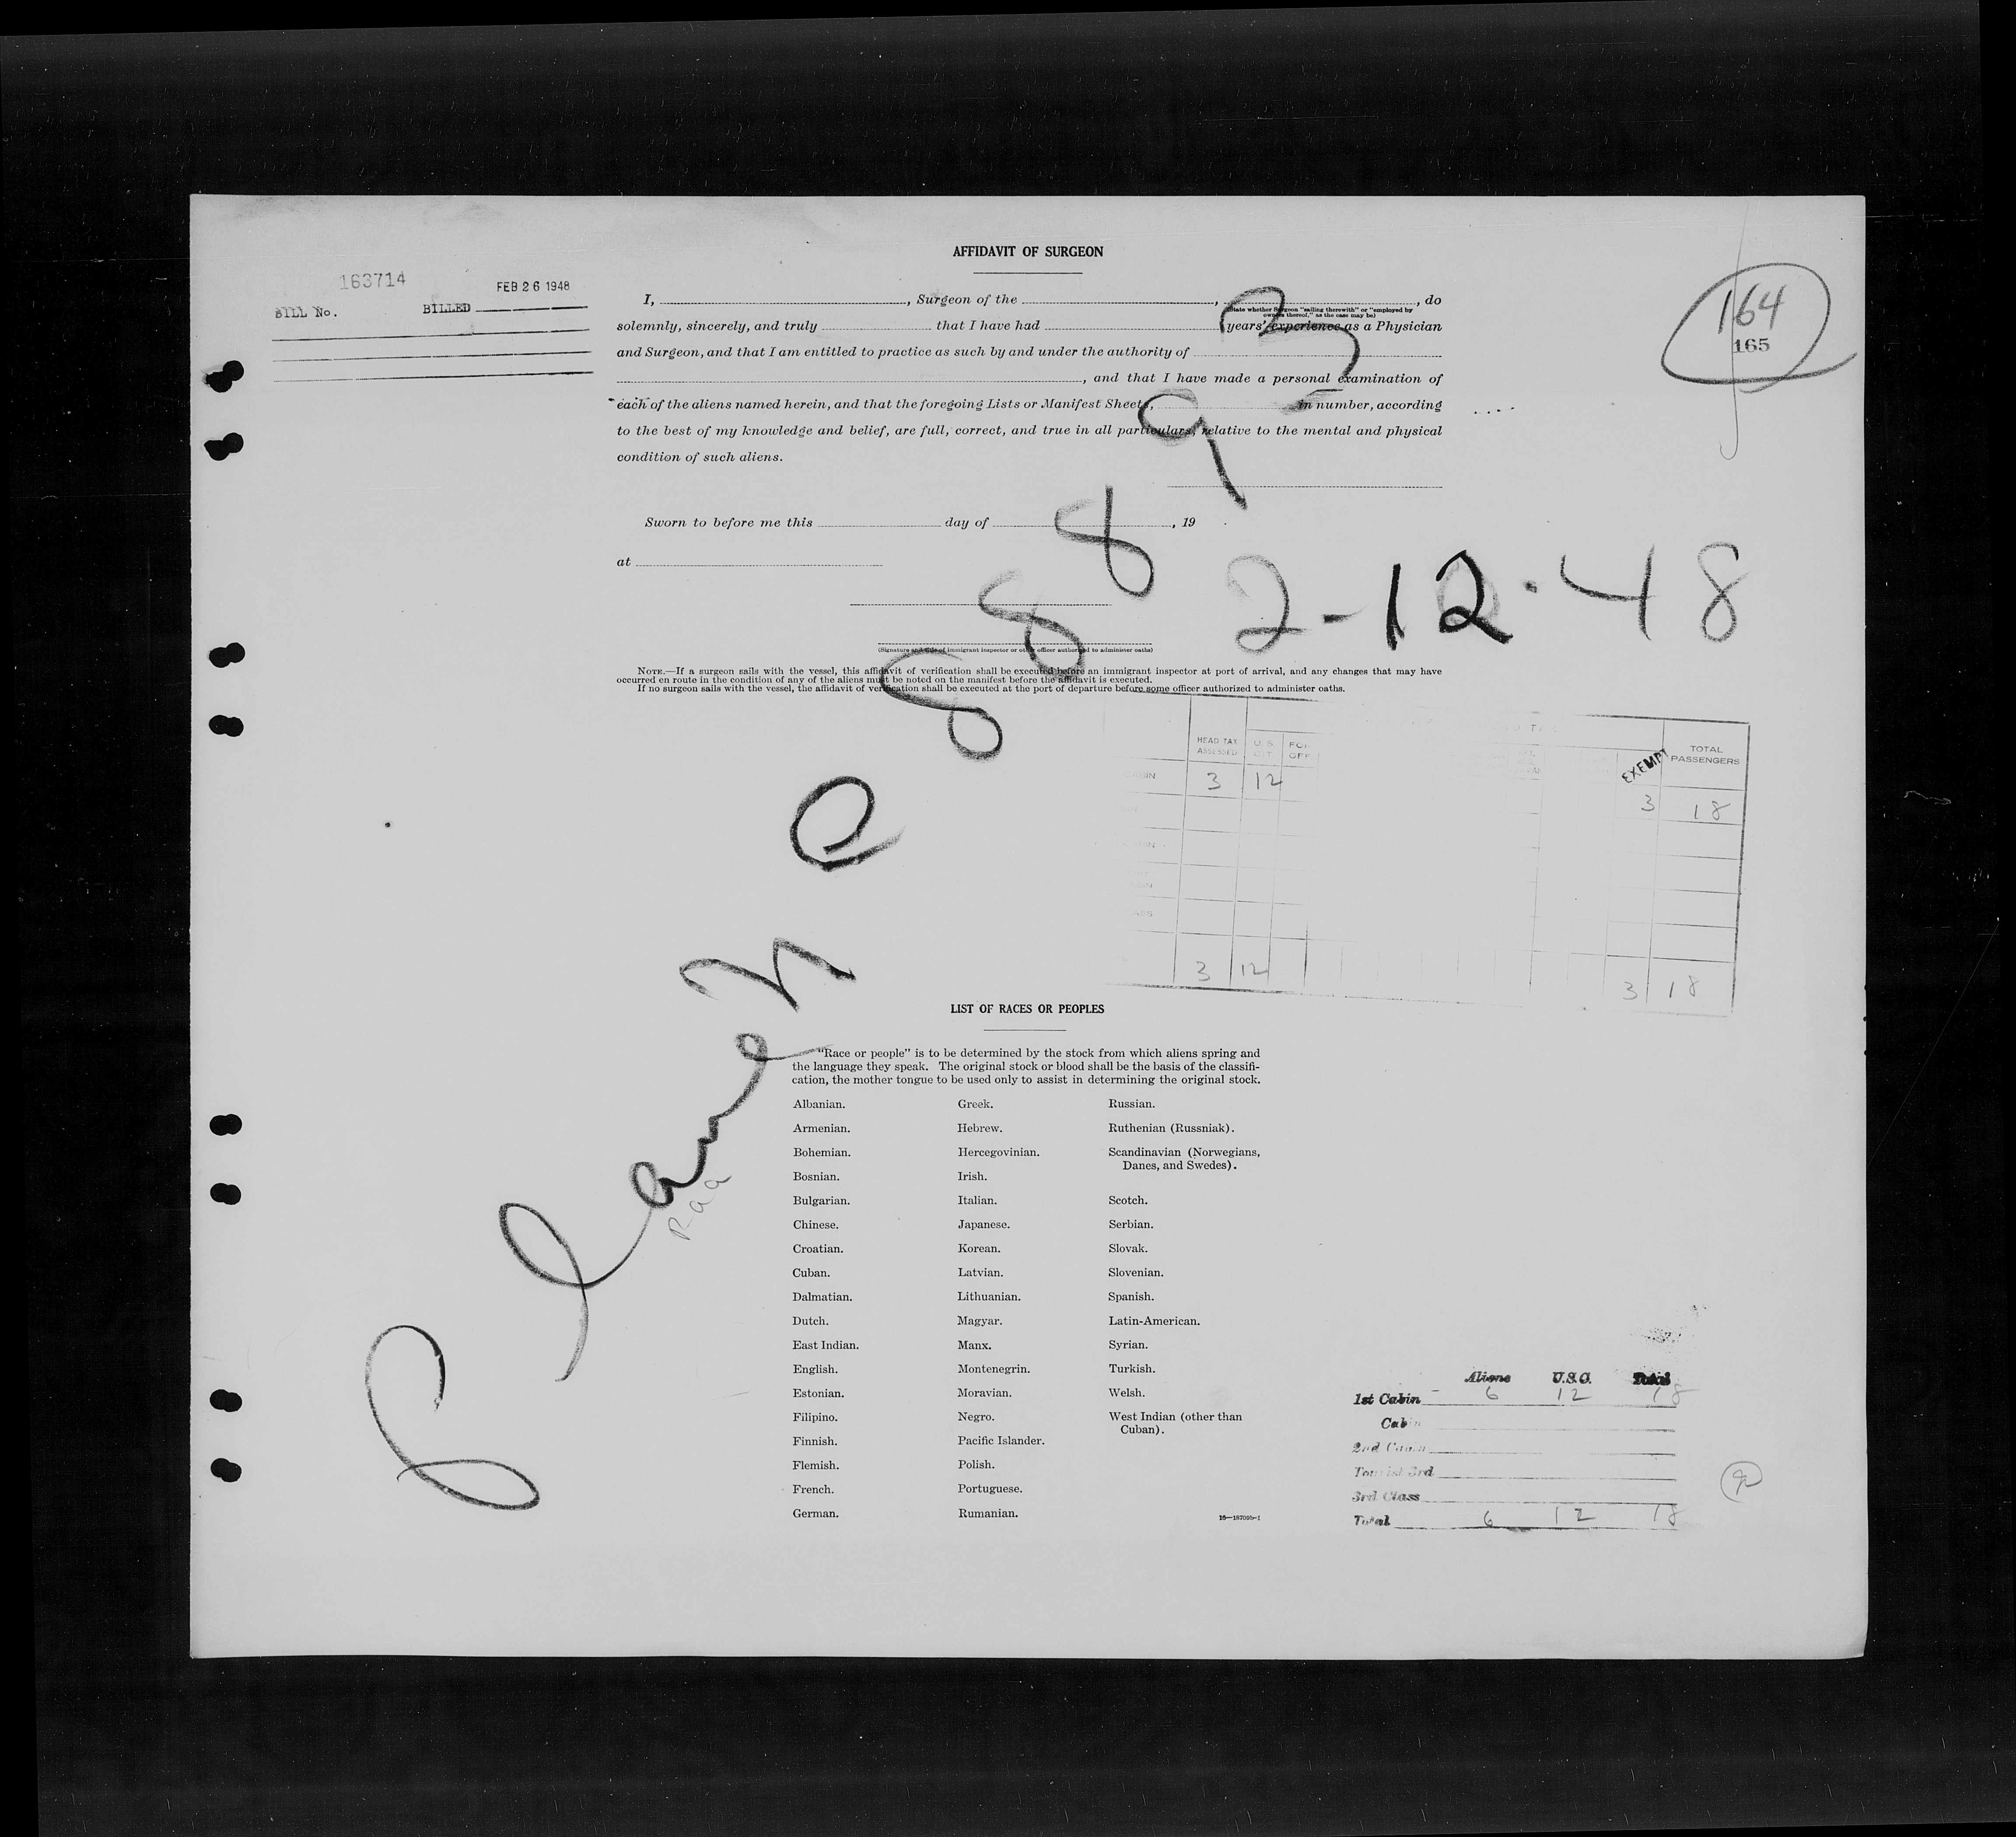 AFFIDAVIT OF SURGEON
163714
FEB 26 1948
BILL No. BILLED
164
165
I, , Surgeon of the , , do
(State whether Surgeon "sailing therewith" or "employed by
owners thereof," as the case may be)
solemnly, sincerely, and truly that I have had years' experience as a Physician
and Surgeon, and that I am entitled to practice as such by and under the authority of
, and that I have made a personal examination of
each of the aliens named herein, and that the foregoing Lists or Manifest Sheets, in number, according
to the best of my knowledge and belief, are full, correct, and true in all particulars, relative to the mental and physical
condition of such aliens.
Sworn to before me this day of , 19
at
2-12-48
(Signature and title of immigrant inspector or other officer authorized to administer oaths)
NOTE.—If a surgeon sails with the vessel, this affidavit of verification shall be executed before an immigrant inspector at port of arrival, and any changes that may have
occurred en route in the condition of any of the aliens must be noted on the manifest before the affidavit is executed.
If no surgeon sails with the vessel, the affidavit of verification shall be executed at the port of departure before some officer authorized to administer oaths.
Plane N C 88893
PAA
HEAD TAX ASSESSED U.S. CIT. EXEMPT TOTAL PASSENGERS
3 12 3 18
3 12 3 18
LIST OF RACES OR PEOPLES
"Race or people" is to be determined by the stock from which aliens spring and
the language they speak. The original stock or blood shall be the basis of the classifi-
cation, the mother tongue to be used only to assist in determining the original stock.
Albanian.
Armenian.
Bohemian.
Bosnian.
Bulgarian.
Chinese.
Croatian.
Cuban.
Dalmatian.
Dutch.
East Indian.
English.
Estonian.
Filipino.
Finnish.
Flemish.
French.
German.
Greek.
Hebrew.
Hercegovinian.
Irish.
Italian.
Japanese.
Korean.
Latvian.
Lithuanian.
Magyar.
Manx.
Montenegrin.
Moravian.
Negro.
Pacific Islander.
Polish.
Portuguese.
Rumanian.
Russian.
Ruthenian (Russniak).
Scandinavian (Norwegians,
Danes, and Swedes).
Scotch.
Serbian.
Slovak.
Slovenian.
Spanish.
Latin-American.
Syrian.
Turkish.
Welsh.
West Indian (other than
Cuban).
Aliens U.S.C. Total
1st Cabin 6 12 18
Cabin
2nd Cabin
Tourist 3rd
3rd Class
Total 6 12 18